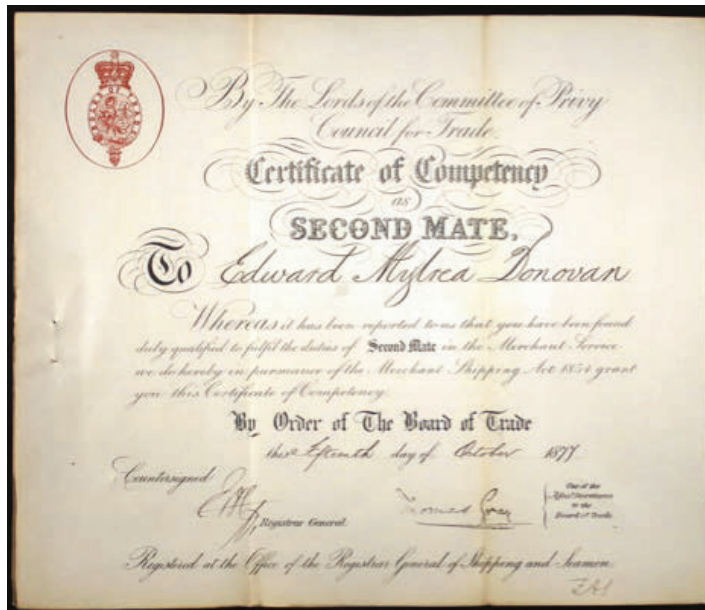 BOARD OF TRADE
By The Lords of the Committee of Privy
Council for Trade.
Certificate of Competency
as
SECOND MATE,
To Edward Mylrea Donovan
Whereas it has been reported to us that you have been found
duly qualified to fulfil the duties of Second Mate in the Merchant Service
we do hereby in pursuance of the Merchant Shipping Act 1854 grant
you this Certificate of Competency.
By Order of The Board of Trade
this fifteenth day of October 1877
Countersigned
Registrar General.
Thomas Gray
One of the
Secretaries
to the
Board of Trade.
Registered at the Office of the Registrar General of Shipping and Seamen.